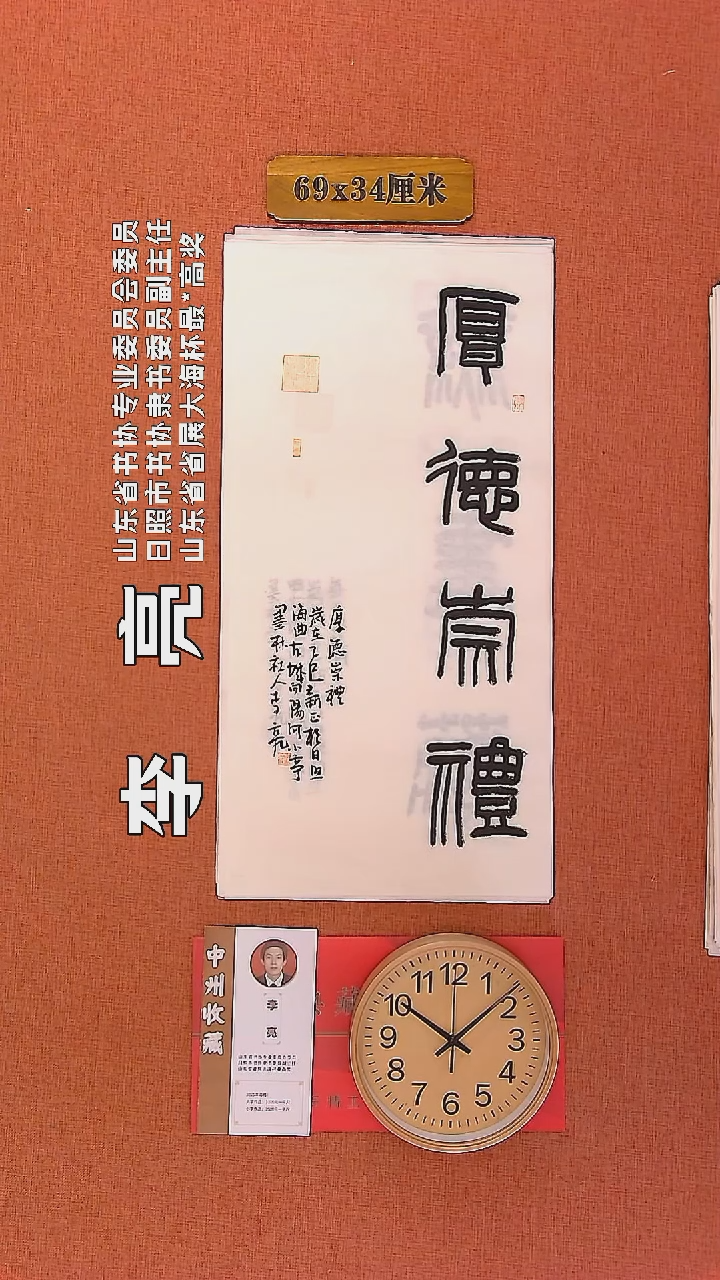 69x34厘米
山东省书协专业委员会委员
日照市书协隶书委员副主任
山东省省展大海杯最*高奖
李亮
厚德崇禮
厚德崇禮
歲在乙巳新正於日照
海曲古城向陽河小亭
墨林社人李亮
中州收藏
李亮
12
1
2
3
4
5
6
7
8
9
10
11